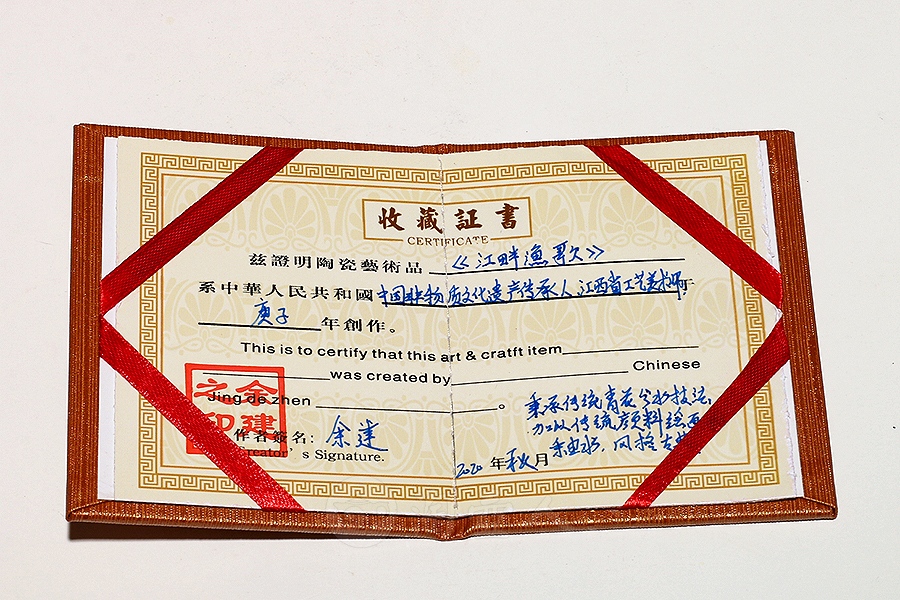 收藏証書
CERTIFICATE
兹證明陶瓷藝術品《江畔漁歌》
系中華人民共和國中国非物质文化遗产传承人江西省工艺美术师于
庚子年創作。
This is to certify that this art & cratft item
was created by Chinese
Jing de zhen 。
秉承传统青花分水技法,
力收传统颜料绘画
风格古
作者簽名: 余建
Creator's Signature.
2020年秋月
余建之印